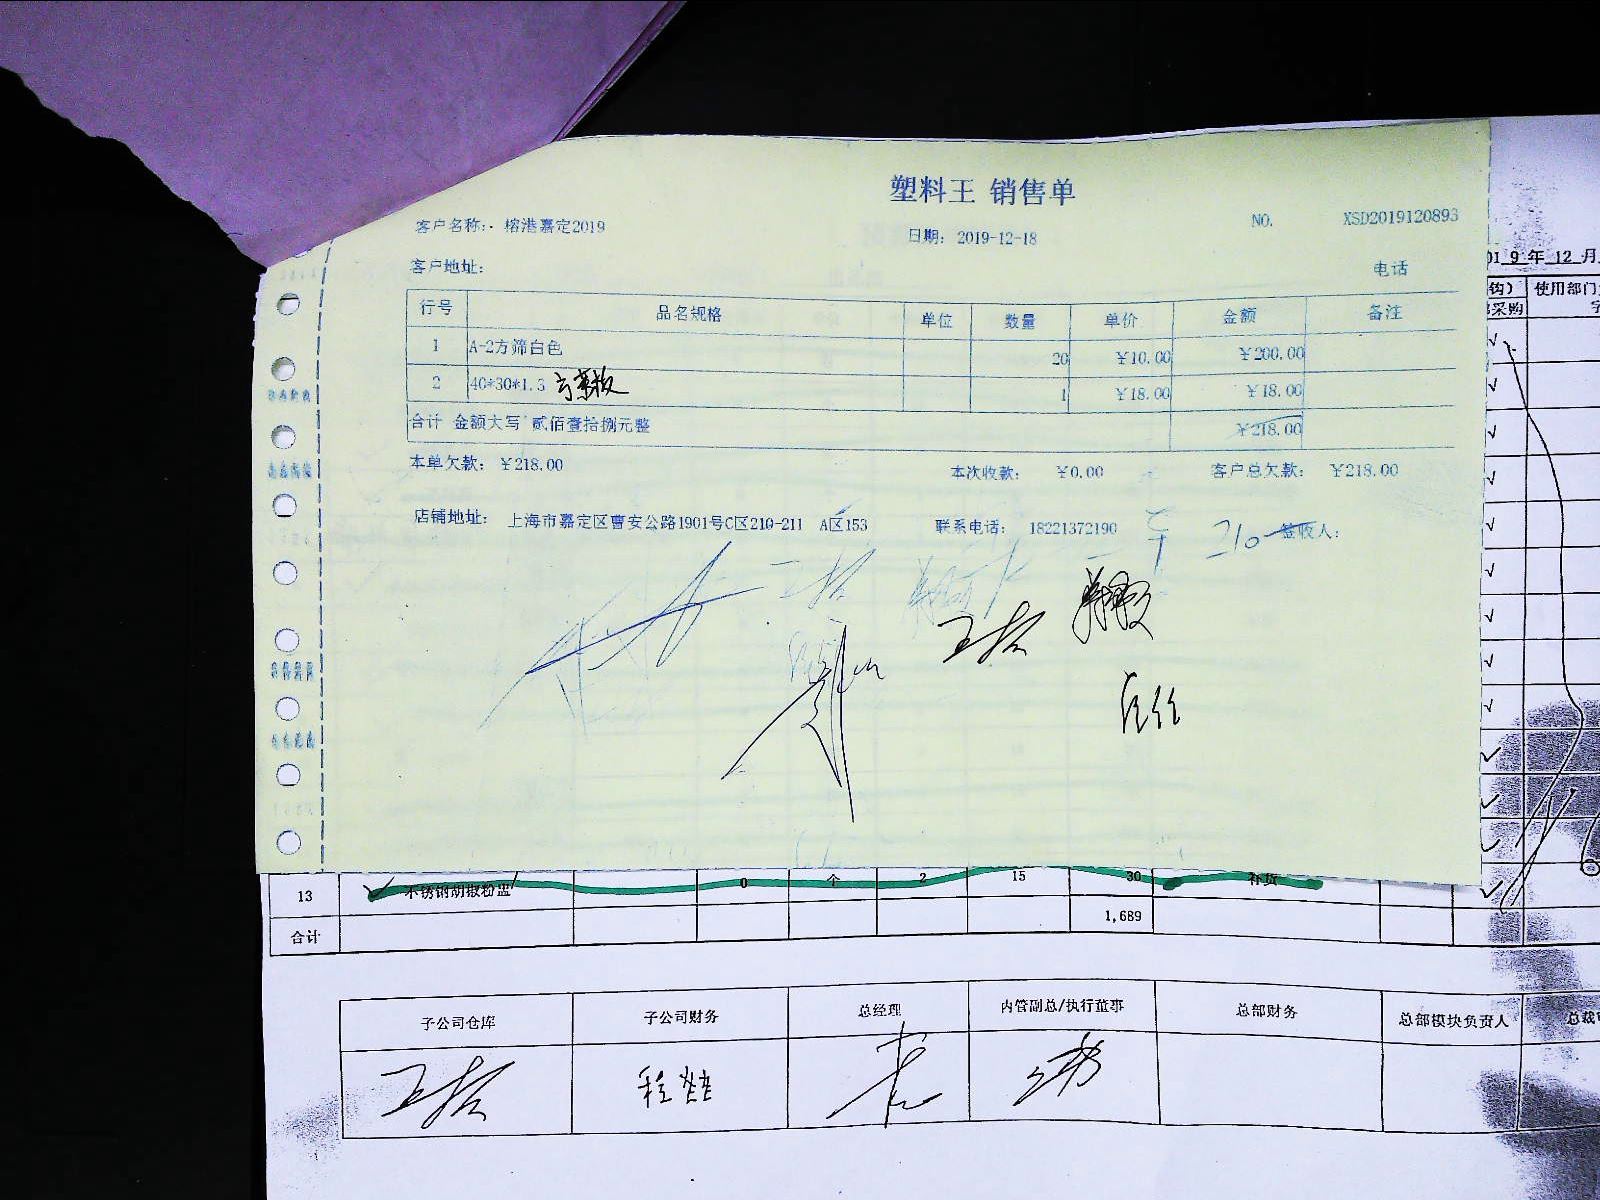 塑料王 销售单
客户名称: 榕港嘉定2019
日期: 2019-12-18
NO. XSD2019120893
客户地址:
电话
行号 品名规格 单位 数量 单价 金额 备注
1 A-2方筛白色 20 ¥10.00 ¥200.00
2 40*30*1.3 ¥18.00 ¥18.00 1
合计 金额大写 贰佰壹拾捌元整 ¥218.00
本单欠款: ¥218.00 本次收款: ¥0.00 客户总欠款: ¥218.00
店铺地址: 上海市嘉定区曹安公路1901号C区210-211 A区153 联系电话: 18221372190 210 签收人:
019年12月
使用部门
采购
13 不锈钢胡椒粉盅 0 个 2 15 30 补货
合计 1,689
子公司仓库 子公司财务 总经理 内管副总/执行董事 总部财务 总部模块负责人 总裁